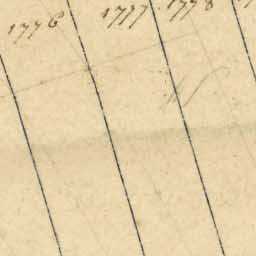 1776 1777 1778